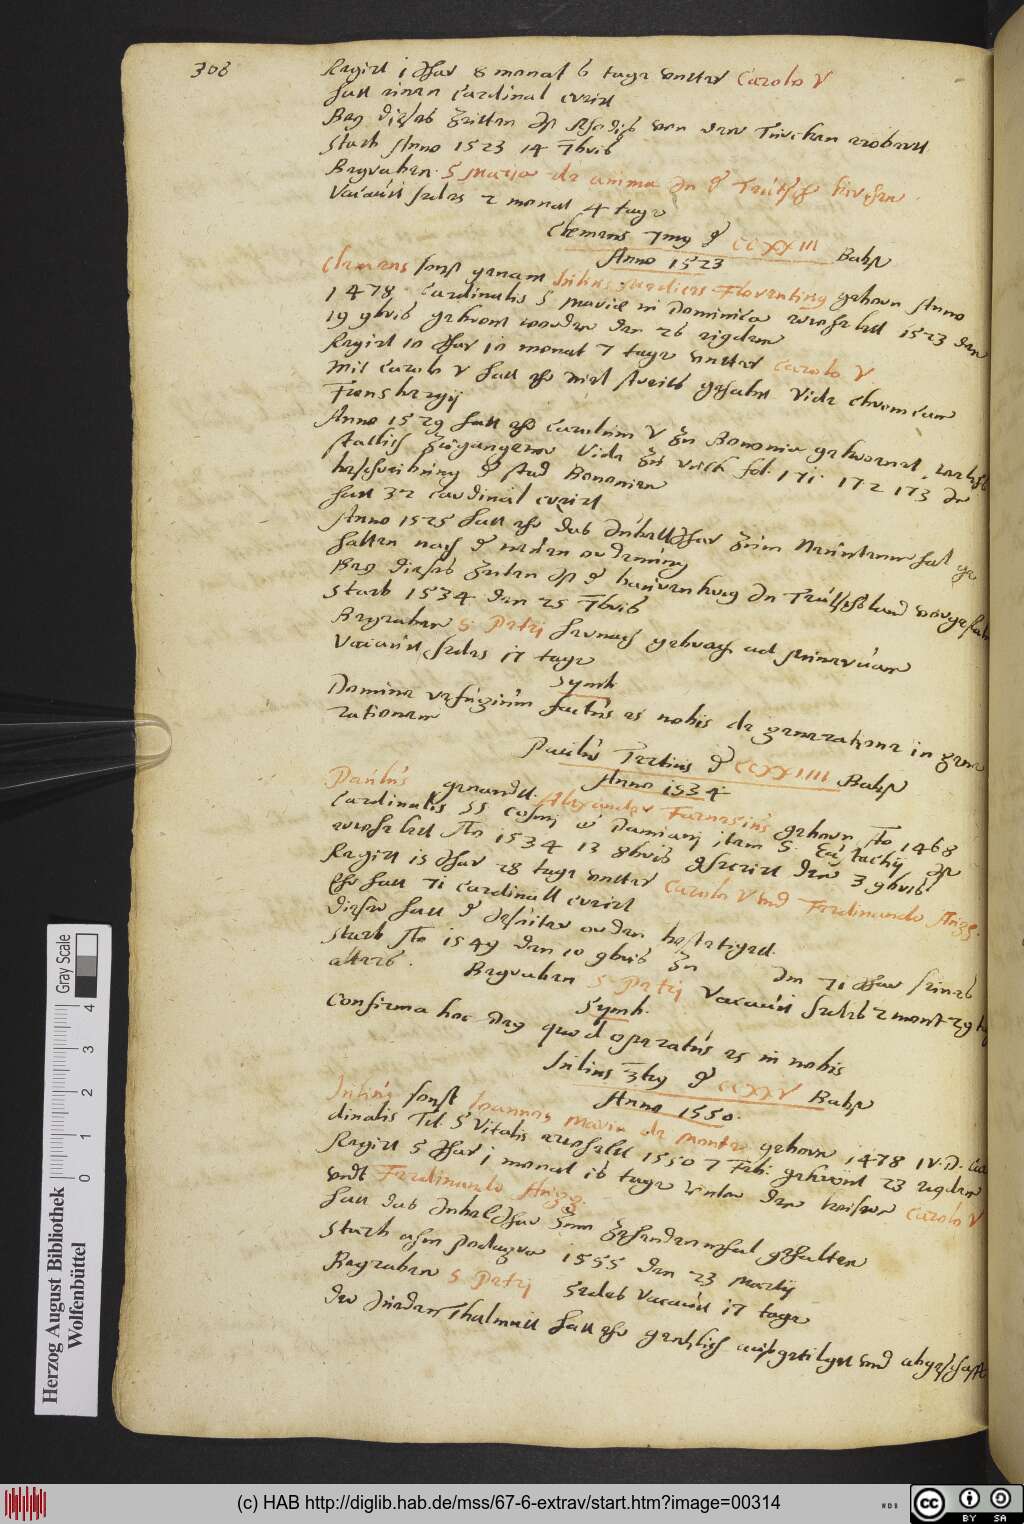 308
Regirt i Jhar 8 monat 6 tage unter Carolo V
hatt einen Cardinal creirt
Bey dieses Zeitten ist Rhodiß von den Türcken erobertt
Starb Anno 1523 14 7bris
Begraben S Maria de anima in der Teütsch kirchen
Vacavit sedes 2 monat 4 tage
Clemens 7mus der CCXXIII Babst
Anno 1523
Clemens sonst genant Julius Florentinus geborn Anno
1478 Cardinalis S Mariæ in Dominica erwehlett 1523 den
19 9bris gekront worden den 26 eigdem
Regirt 10 Jhar 10 monat 7 tage unter Carolo V
Mit Carolo V hatt ehr viel streitts gehabt Vide chronicam
Anno 1529 hatt ehr Carolum V zu Bononia gekroenet,
stattlich zugangenn Vide fol. 171. 172 173 in
beschreibung der stad Bononien
hatt 32 Cardinal creirt
Anno 1525 hatt ehr das Jubell Jhar zum Neuntenmhal ge
halten nach der neuen ordenung
Bey dieses Zeiten ist der in Teütschland
Starb 1534 den 25 7bris
Begraben S. Petri hernach gebrach ad Minervam
Vacavit sedes 17 tage
Symb.
Domine refugium factus es nobis de generatione in gene
rationem
Paulus Tertius der CCXXIIII Babst
Anno 1534.
Paulus genandt Alexander Farnesius geborn Ao 1468
Cardinalis SS Cosmi et Damiani item S. Eustachij ist
erwehlett Ao 1534 13 8bris den 3 9bris
Regirt 15 Jhar 28 tage unter Carolo V und Ferdinando
Ehr hatt 71 Cardinall creirt
Dieser hatt der Jesuiter orden bestetiged.
Starb Ao 1549 den 10 9bris im 71 Jhar seines
alters. Begraben S. Petri Vacavit sedes 2 monat 29
Symb.
Confirma hoc Deus quod operatus es in nobis
Julius 3tius der CCXXV Babst
Anno 1550.
Julius sonst Joannes Maria de Monte geborn 1478
dinalis Tit. S Vitalis erwehlett 1550 7 Feb: gekront 23 eigdem
Regirt 5 Jhar i monat 16 tage unter den keiser Carolo V
undt Ferdinando
hatt das Jubel Jhar zum Zehendenmhal gehalten
Starb ahm podagra 1555 den 23 Martij
Begraben S Petri Sedes Vacavit 17 tage
Der Jueden Thalmutt hatt ehr gentzlich außgetilgtt und abgeschafft
Gray Scale
0 1 2 3 4
Herzog August Bibliothek
Wolfenbüttel
(c) HAB http://diglib.hab.de/mss/67-6-extrav/start.htm?image=00314
WDB
cc BY SA